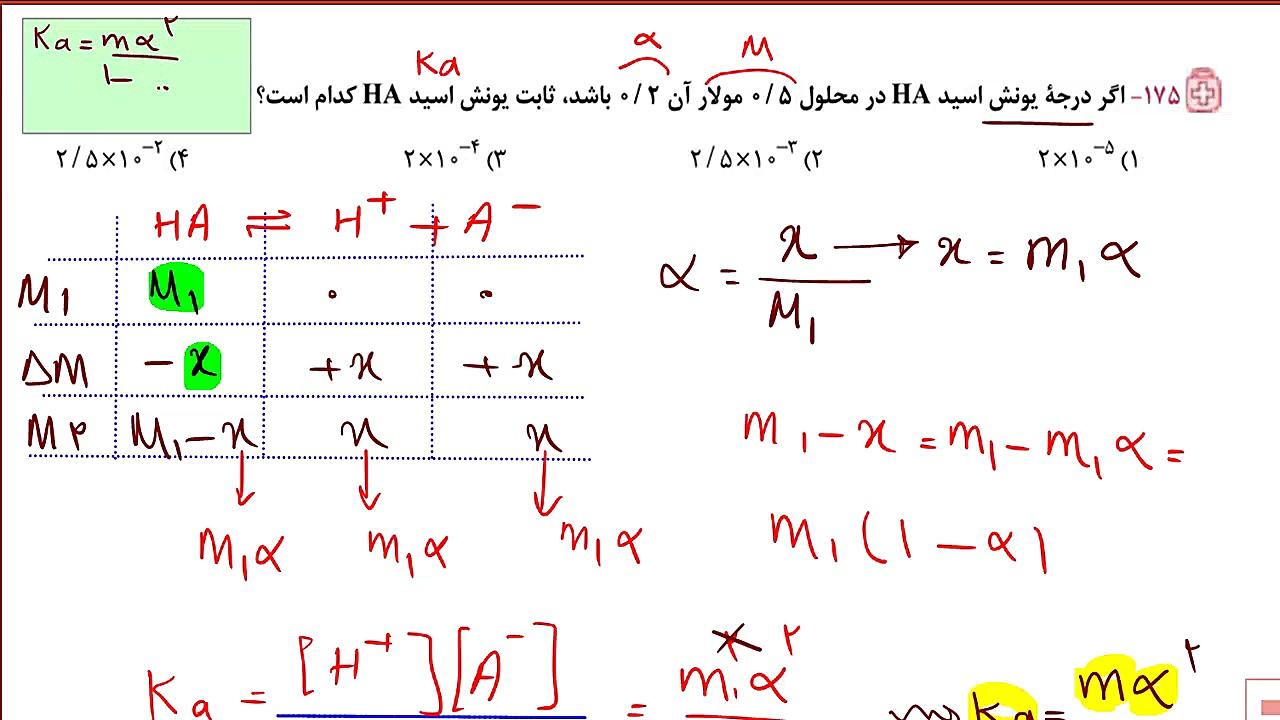 Ka = mα²
1- ..
Ka α M
۱۷۵- اگر درجهٔ یونش اسید HA در محلول ۰/۵ مولار آن ۰/۲ باشد، ثابت یونش اسید HA کدام است؟
۱) ۲×۱۰⁻⁵ ۲) ۲/۵×۱۰⁻³ ۳) ۲×۱۰⁻⁴ ۴) ۲/۵×۱۰⁻²
HA ⇌ H⁺ + A⁻
M₁ M₁ . .
ΔM -x +x +x
M۲ M₁-x x x
m₁α m₁α m₁α
α = x / M₁ → x = m₁α
m₁-x = m₁-m₁α =
m₁(1-α)
Ka = [H⁺][A⁻] = m₁α² Ka = mα²